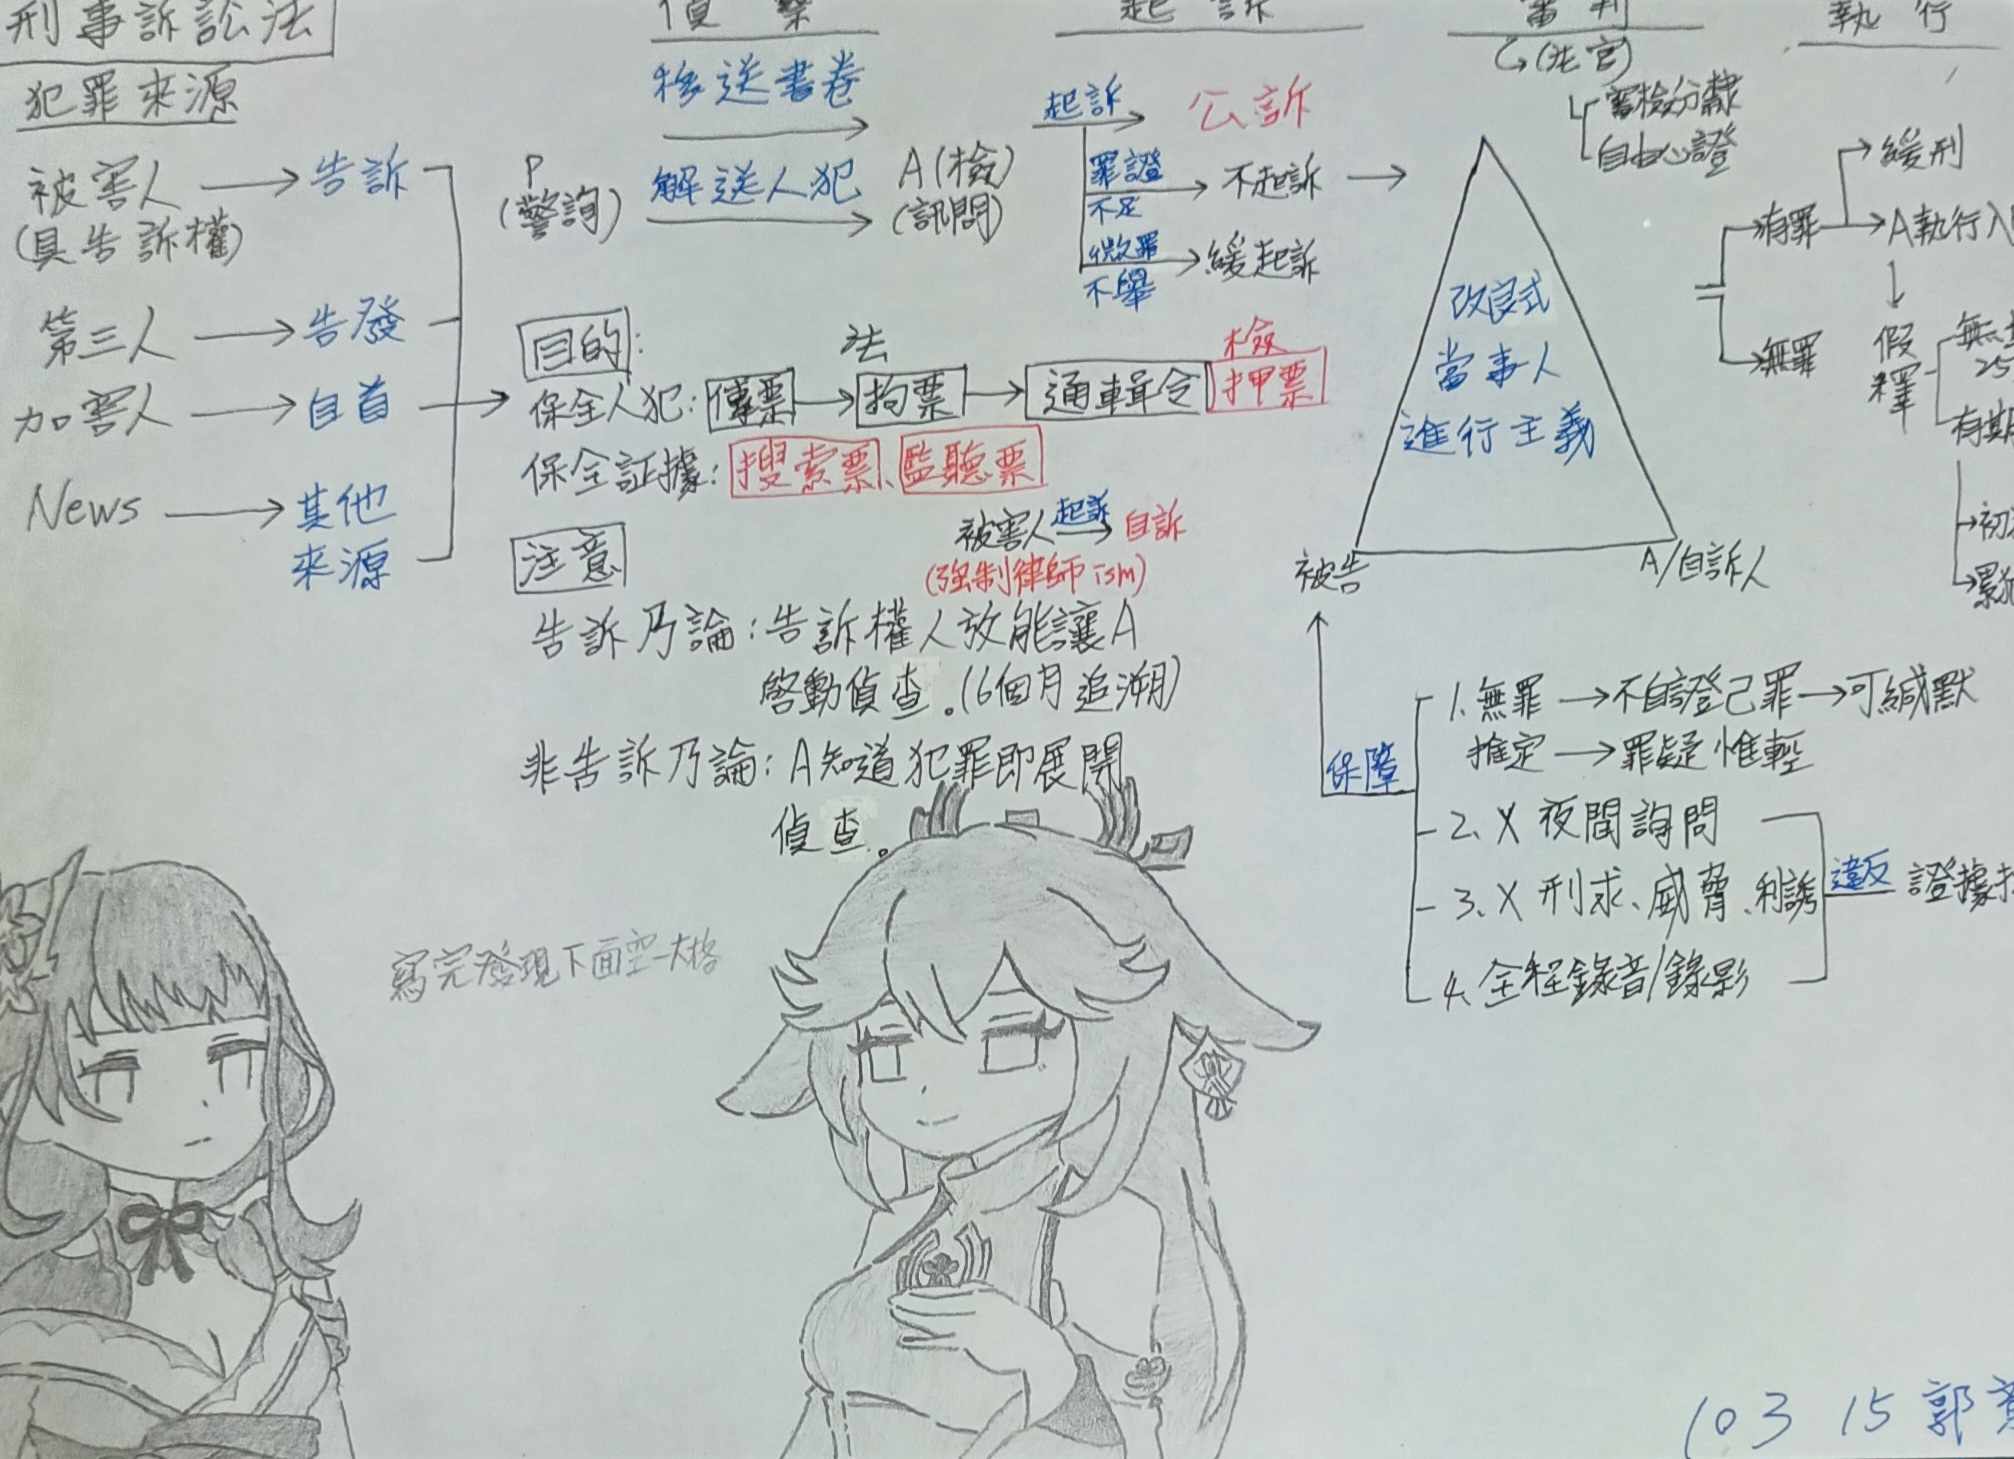 刑事訴訟法
犯罪來源
被害人 告訴
(具告訴權)
第三人 告發
加害人 自首
News 其他
來源
偵查
移送書卷
P
(警詢)
解送人犯
A(檢)
(訊問)
目的:
法
檢
保全人犯: 傳票 拘票 通輯令 押票
保全証據: 搜索票、監聽票
注意
被害人 起訴 自訴
(強制律師 ism)
告訴乃論:告訴權人放能讓A
啓動偵查。(6個月追溯)
非告訴乃論:A知道犯罪即展開
偵查。
起訴
起訴 公訴
罪證
不足
不起訴
微罪
不舉
緩起訴
審判
(法官)
審檢分隸
自由心證
改良式
當事人
進行主義
被告
A/自訴人
保障
1. 無罪 不自證己罪 可緘默
推定 罪疑惟輕
2. X 夜間詢問
3. X 刑求、威脅、利誘
4. 全程錄音/錄影
違反 證據
執行
有罪
緩刑
A執行入
無罪
假
釋
無
25
有期
初
累犯
寫完發現下面空一大格
103 15 郭